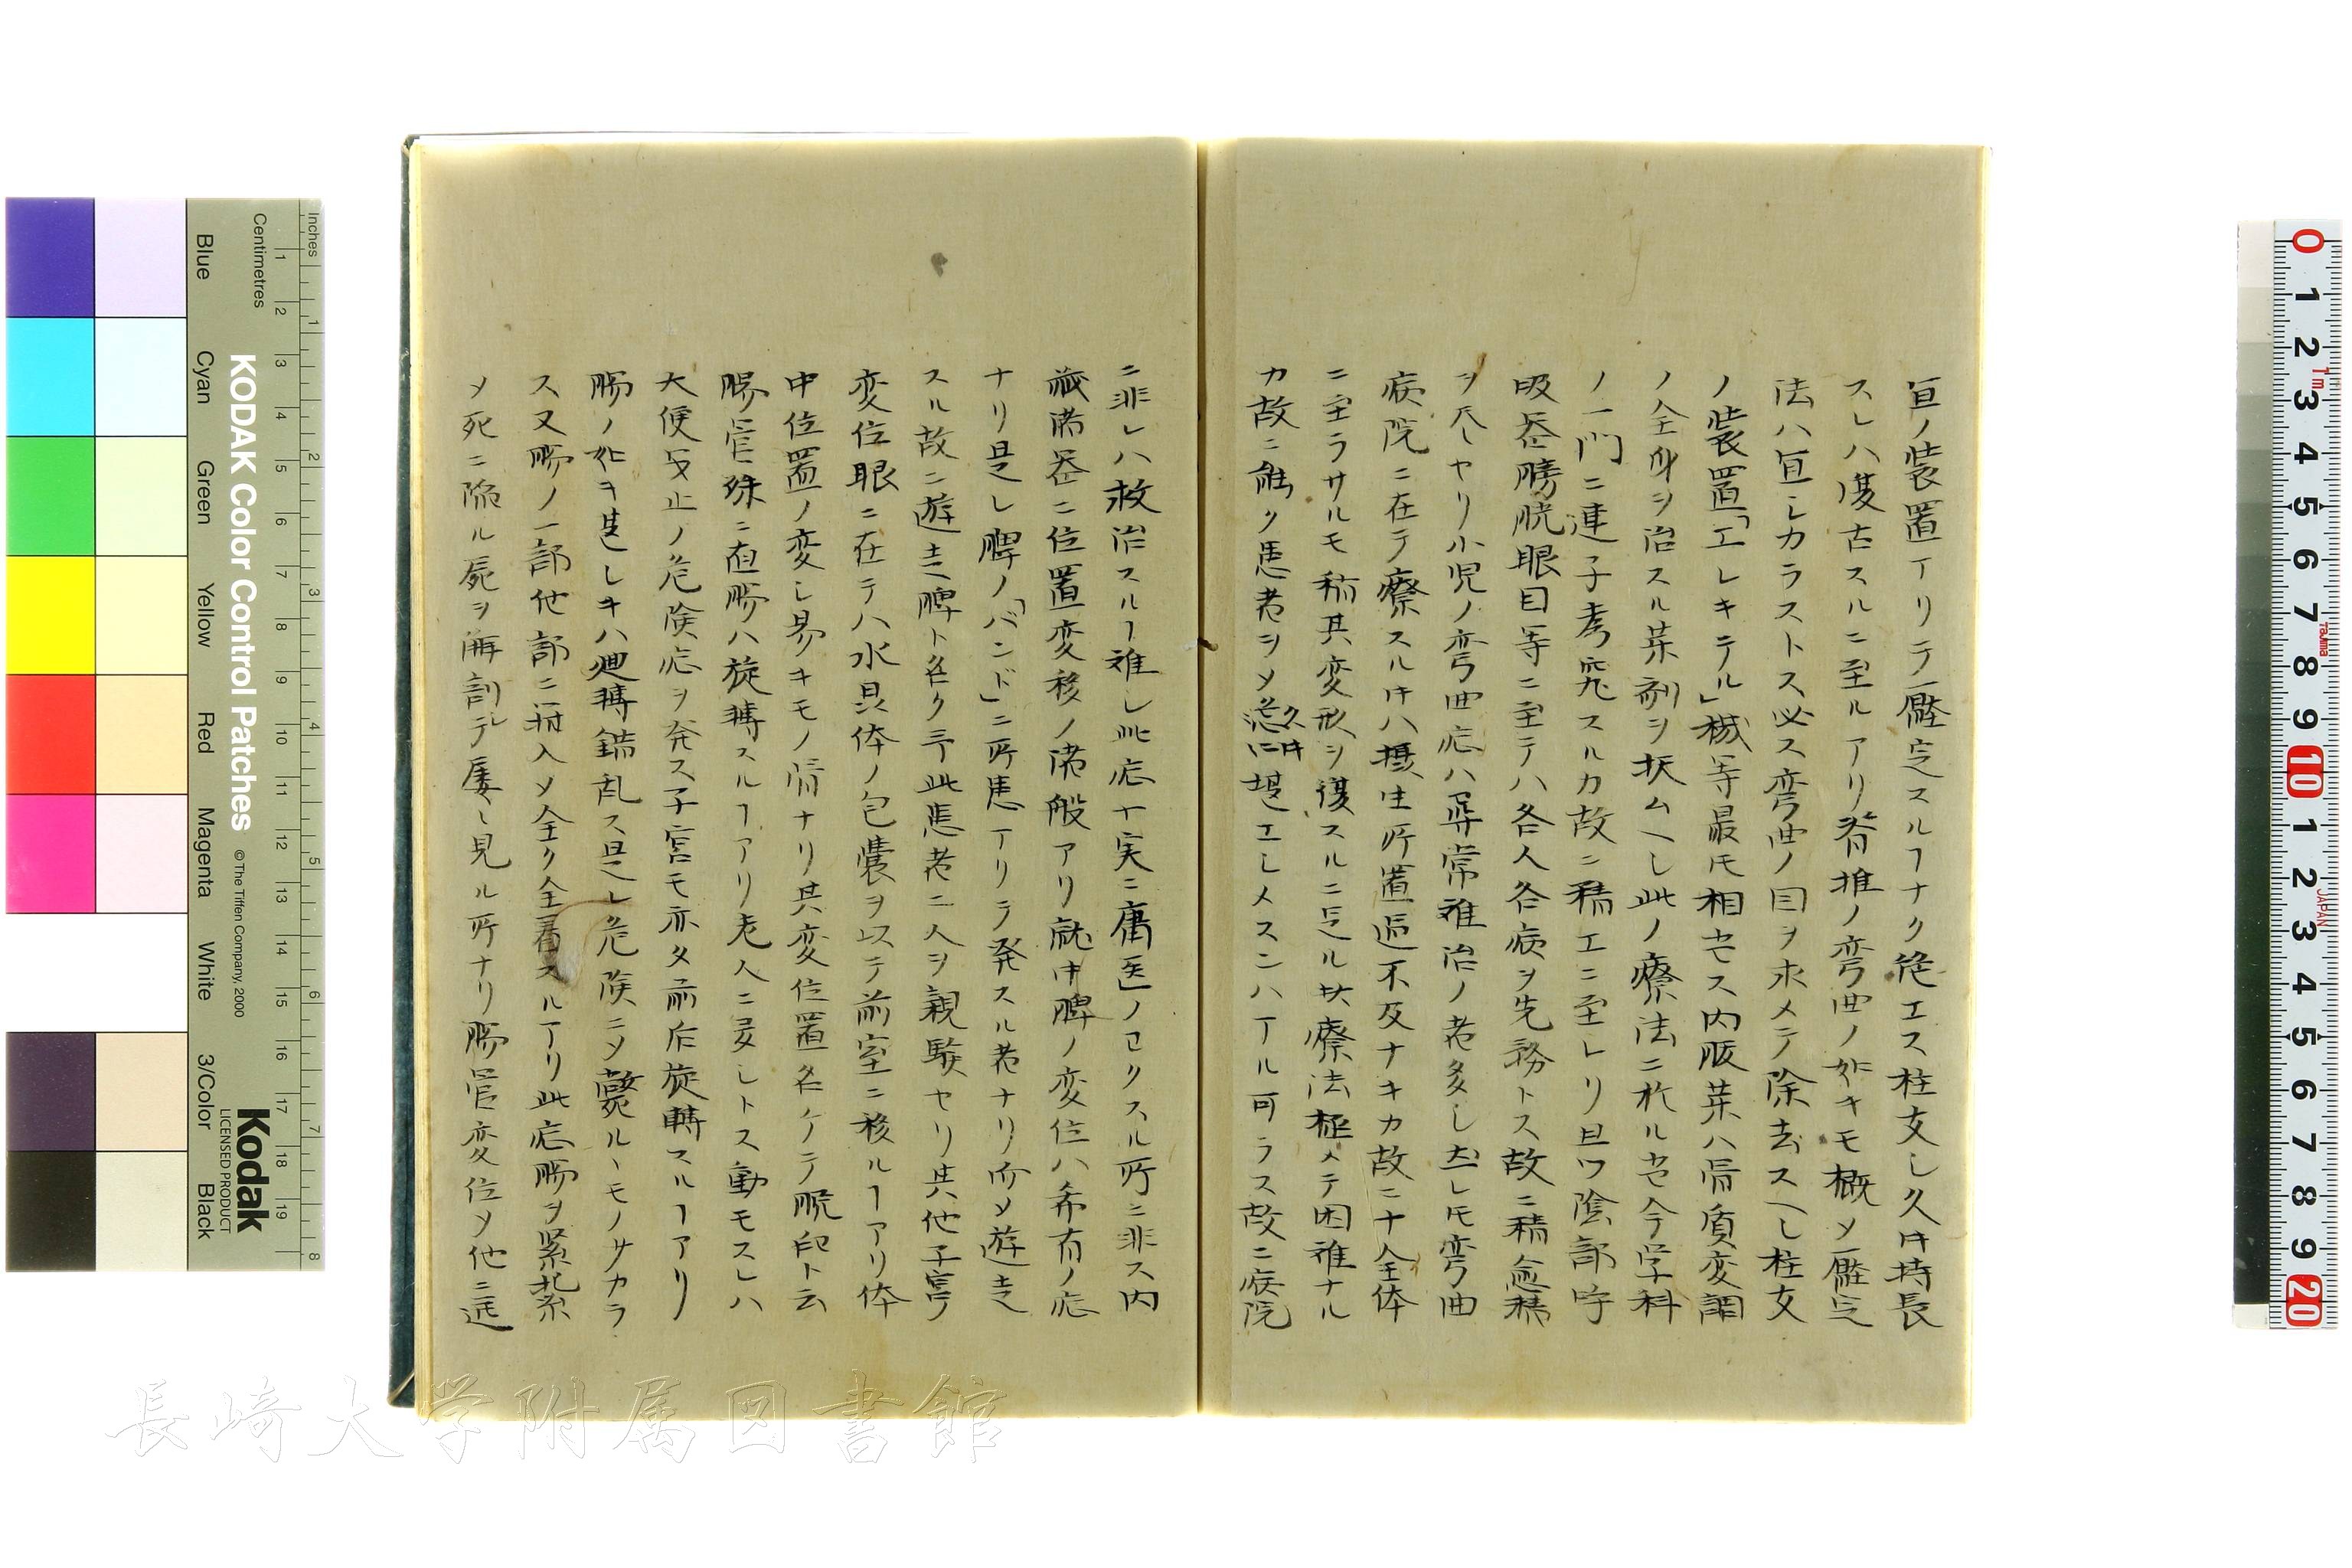 宜ノ装置アリテ壓定スルヿナク絶エス柱支シ久キ持長
スレハ復古スルニ至ルアリ脊推ノ弯曲ノ如キモ概メ壓定
法ハ宜シカラストス必ス弯曲ノ因ヲ求メテ除去スヘシ柱支
ノ装置「エレキテル」械等最モ相セス内服薬ハ骨質変調
ノ全身ヲ治スル薬剤ヲ扶ムヘシ此ノ療法ニ於ルセ今学科
ノ一門ニ連子考究スルカ故ニ精エニ至レリ且ツ陰部呼
吸器膀胱眼目等ニ至テハ各人各病ヲ先務トス故ニ精愈精
ヲ尽セリ小児ノ弯曲症ハ尋常難治ノ者多シ𪜈弯曲
病院ニ在テ療スル片ハ摂生所置適不及ナキカ故ニ十全体
ニ至ラサルモ稍其変形ヲ復スルニ足ル共療法極メテ困難ナル
カ故ニ能ク患者ヲメ堪エシメスンハアル可ラス故ニ病院
ニ非レハ救治スルヿ難シ此症十実ニ庸医ノヨクスル所ニ非ス内
蔵諸器ニ位置変移ノ諸般アリ就中脾ノ変位ハ希有ノ症
ナリ是レ脾ノ「バンド」ニ所患アリテ発スル者ナリ而メ遊走
スル故ニ遊走脾ト名ク予此患者二人ヲ親験セリ其他子宮
変位眼ニ在テハ水晶体ノ包嚢ヲ以テ前室ニ移ルヿアリ体
中位置ノ変シ易キモノ腸ナリ其変位置名ケテ脱肛ト云
腸管殊ニ直腸ハ旋轉スルヿアリ老人ニ多シトス動モスレハ
大便閉止ノ危険症ヲ発ス子宮モ亦タ前后旋轉スルヿアリ
腸ノ如キ甚シキハ廻轉錯乱ス是レ危険ニメ斃ルヽモノサカラ
ス又腸ノ一部他部ニ揷入メ全ク全着スルアリ此症腸ヲ緊紮
メ死ニ陥ル屍ヲ解剖シテ屡〻見ル所ナリ腸管変位メ他ニ逃
KODAK Color Control Patches
© The Tiffen Company, 2000
Kodak
LICENSED PRODUCT
Inches
Centimetres
Blue
Cyan
Green
Yellow
Red
Magenta
White
3/Color
Black
長崎大学附属図書館